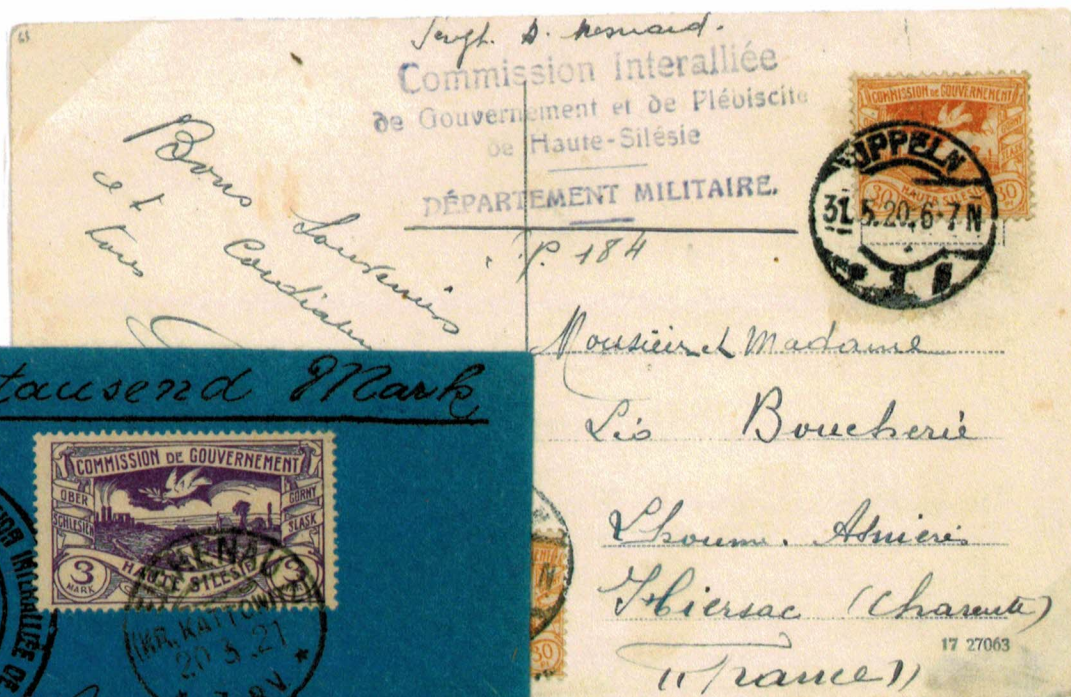 Sergt. D. Mesnard.
Commission Interalliée
de Gouvernement et de Plébiscite
de Haute-Silésie
DÉPARTEMENT MILITAIRE.
COMMISSION DE GOUVERNEMENT
HAUTE SILÉSIE
30 30
OPPELN
31.5.20.6-7N
Bons Souvenirs
et Cordia
P. 184
Monsieur et Madame
Léo Boucherie
Lhoume. Asnières
Hiersac (Charente)
(France)
17 27063
tausend Mark
COMMISSION DE GOUVERNEMENT
OBER SCHLESIEN
GORNY SLASK
HAUTE SILÉSIE
3 MARK
(KR. KATTOWITZ)
20.3.21
INTERALLIÉE DE
30
N